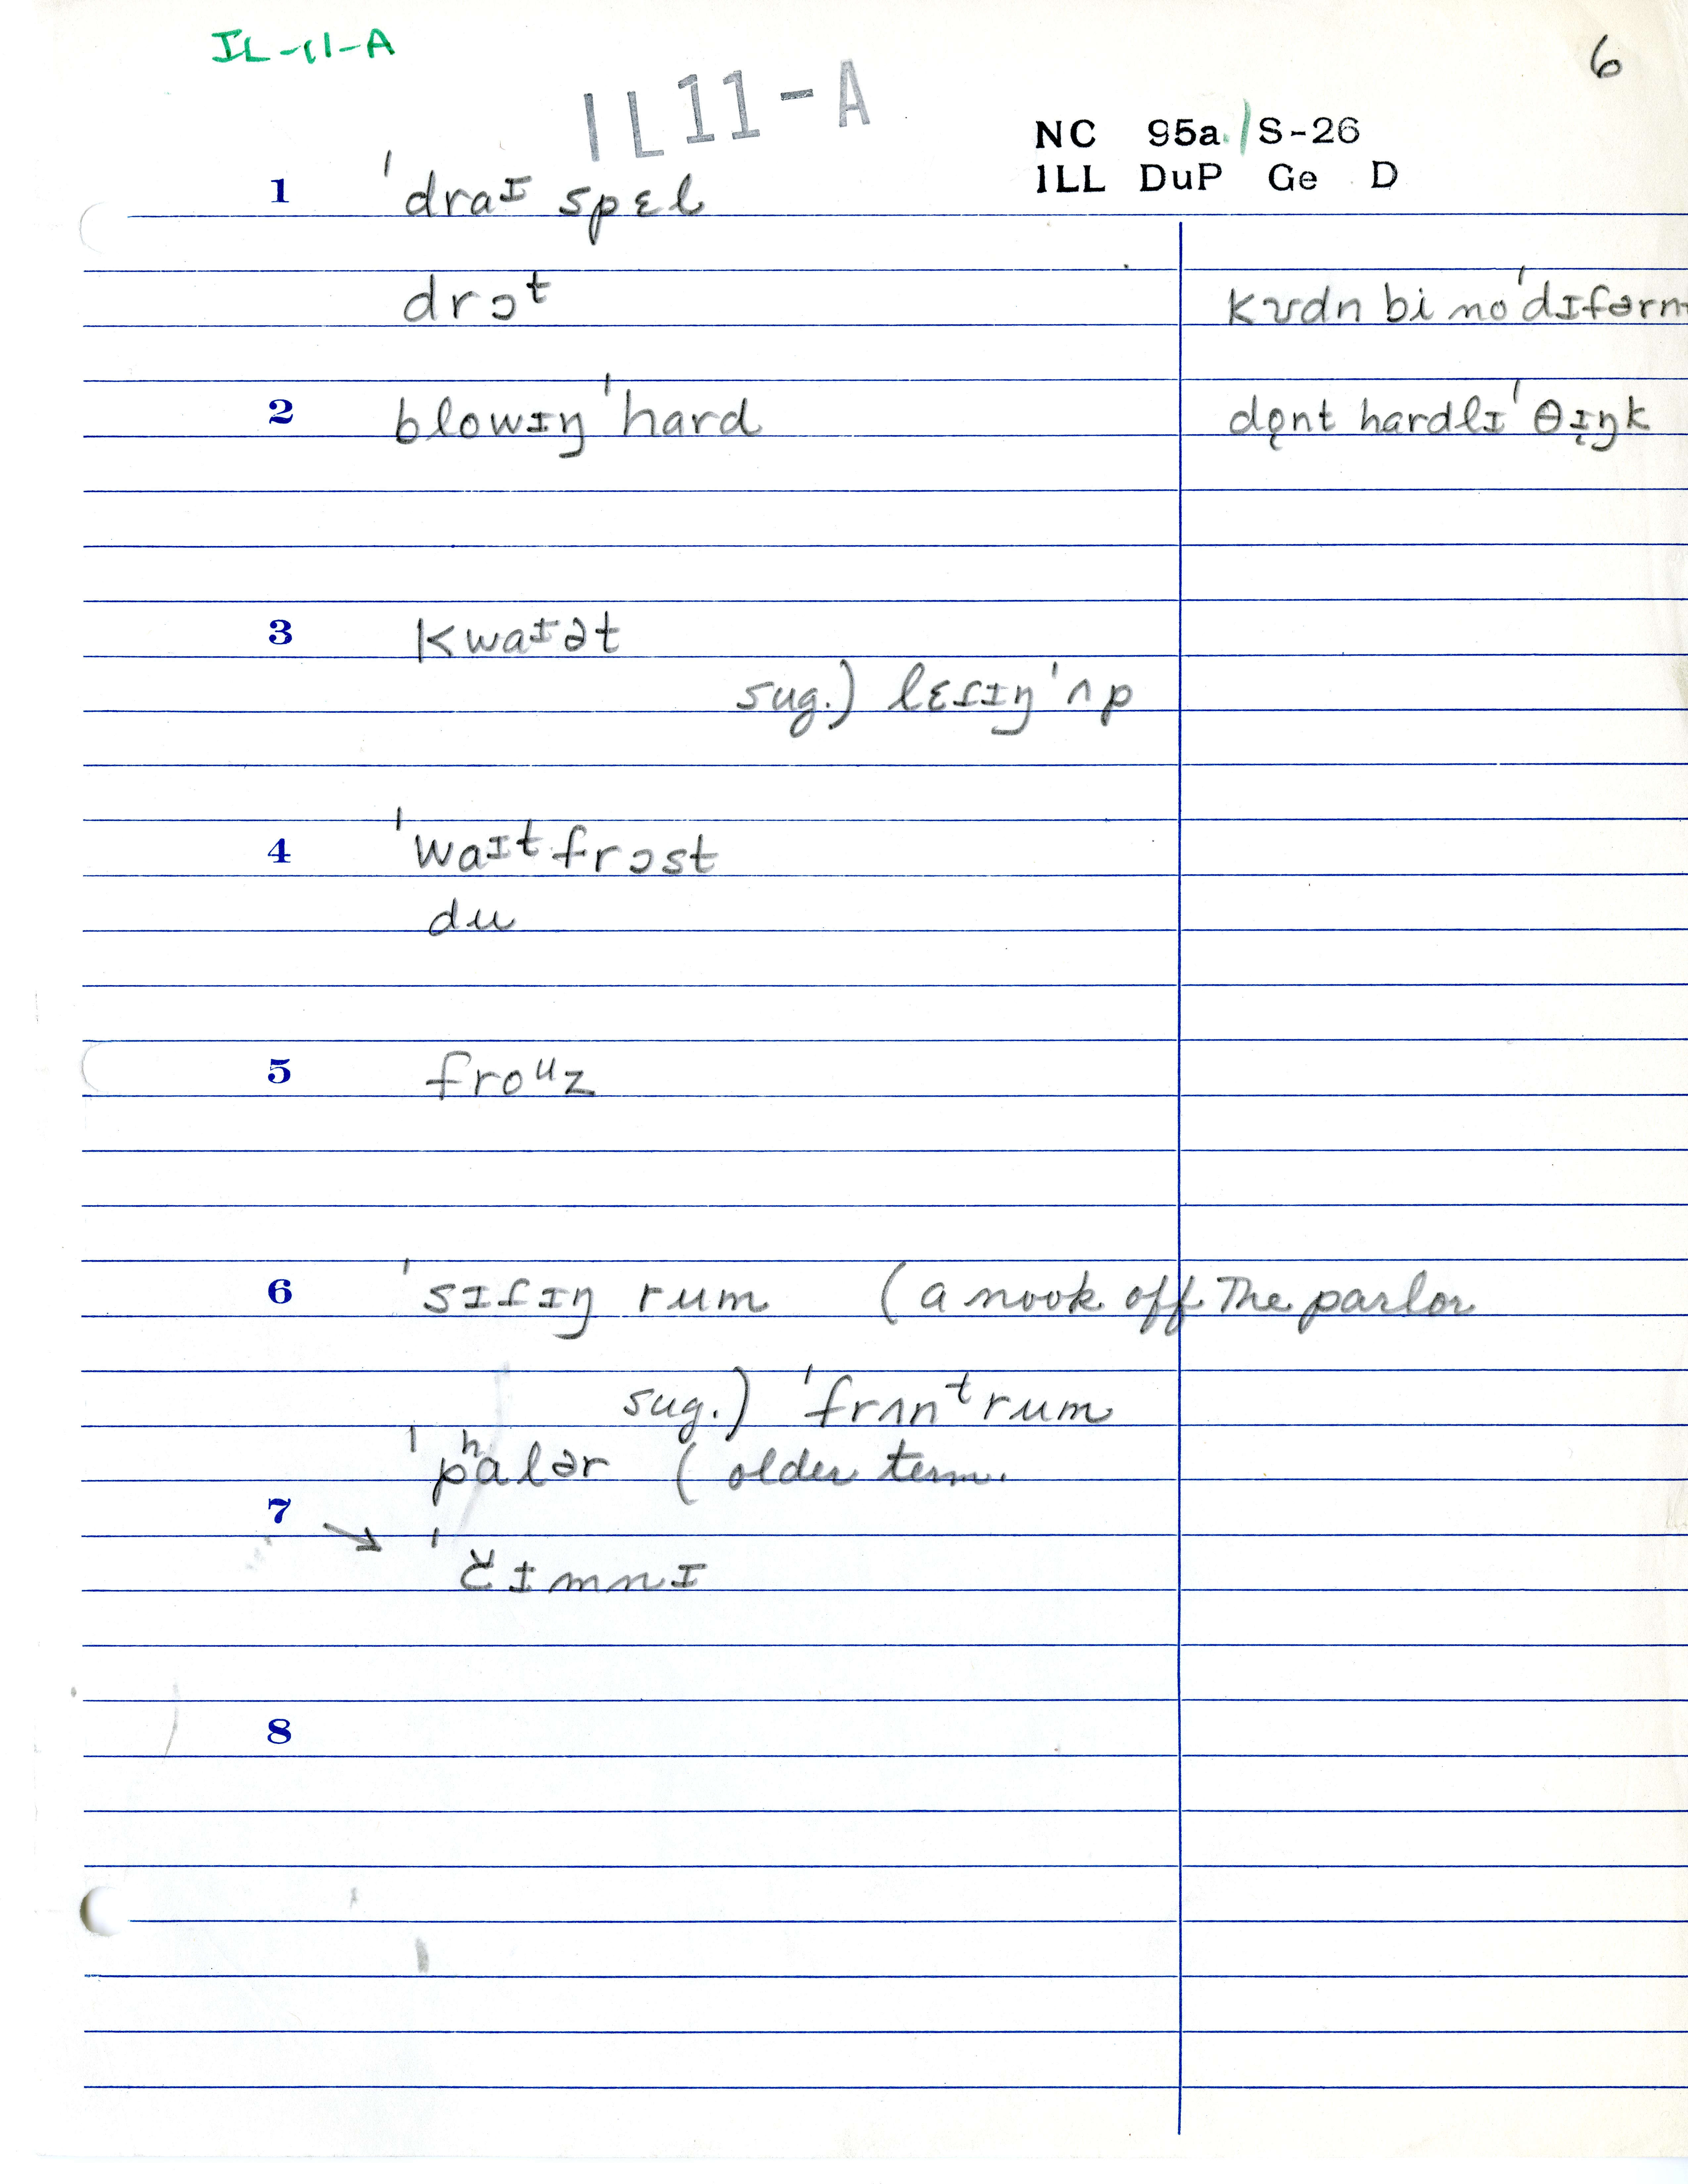 IL-11-A
6
IL11-A
NC 95a./S-26
ILL DuP Ge D
1 ˈdraɪ spɛl
drɔt kʊdn bi no ˈdɪfərn
2 blowɪŋ ˈhard do̜nt hardlɪ ˈθɪ̜ŋk
3 kwaɪət
sug.) lɛɾɪŋ ˈʌp
4 ˈwaɪt frɔst
du
5 froᵘz
6 ˈsɪɾɪŋ rum (a nook off the parlor
sug.) ˈfrʌnᵗrum
ˈpʰalər (older term.
7
→ ˈčɪmnɪ
8